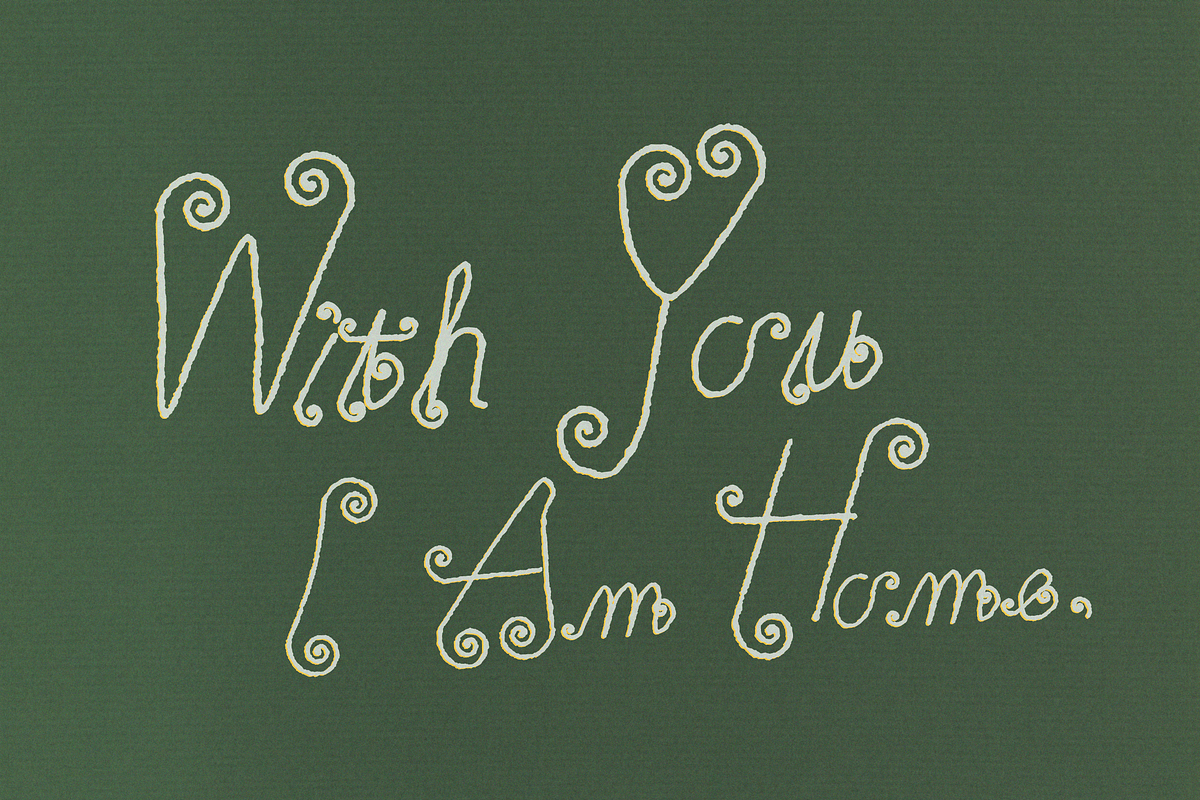 With You
I Am Home.